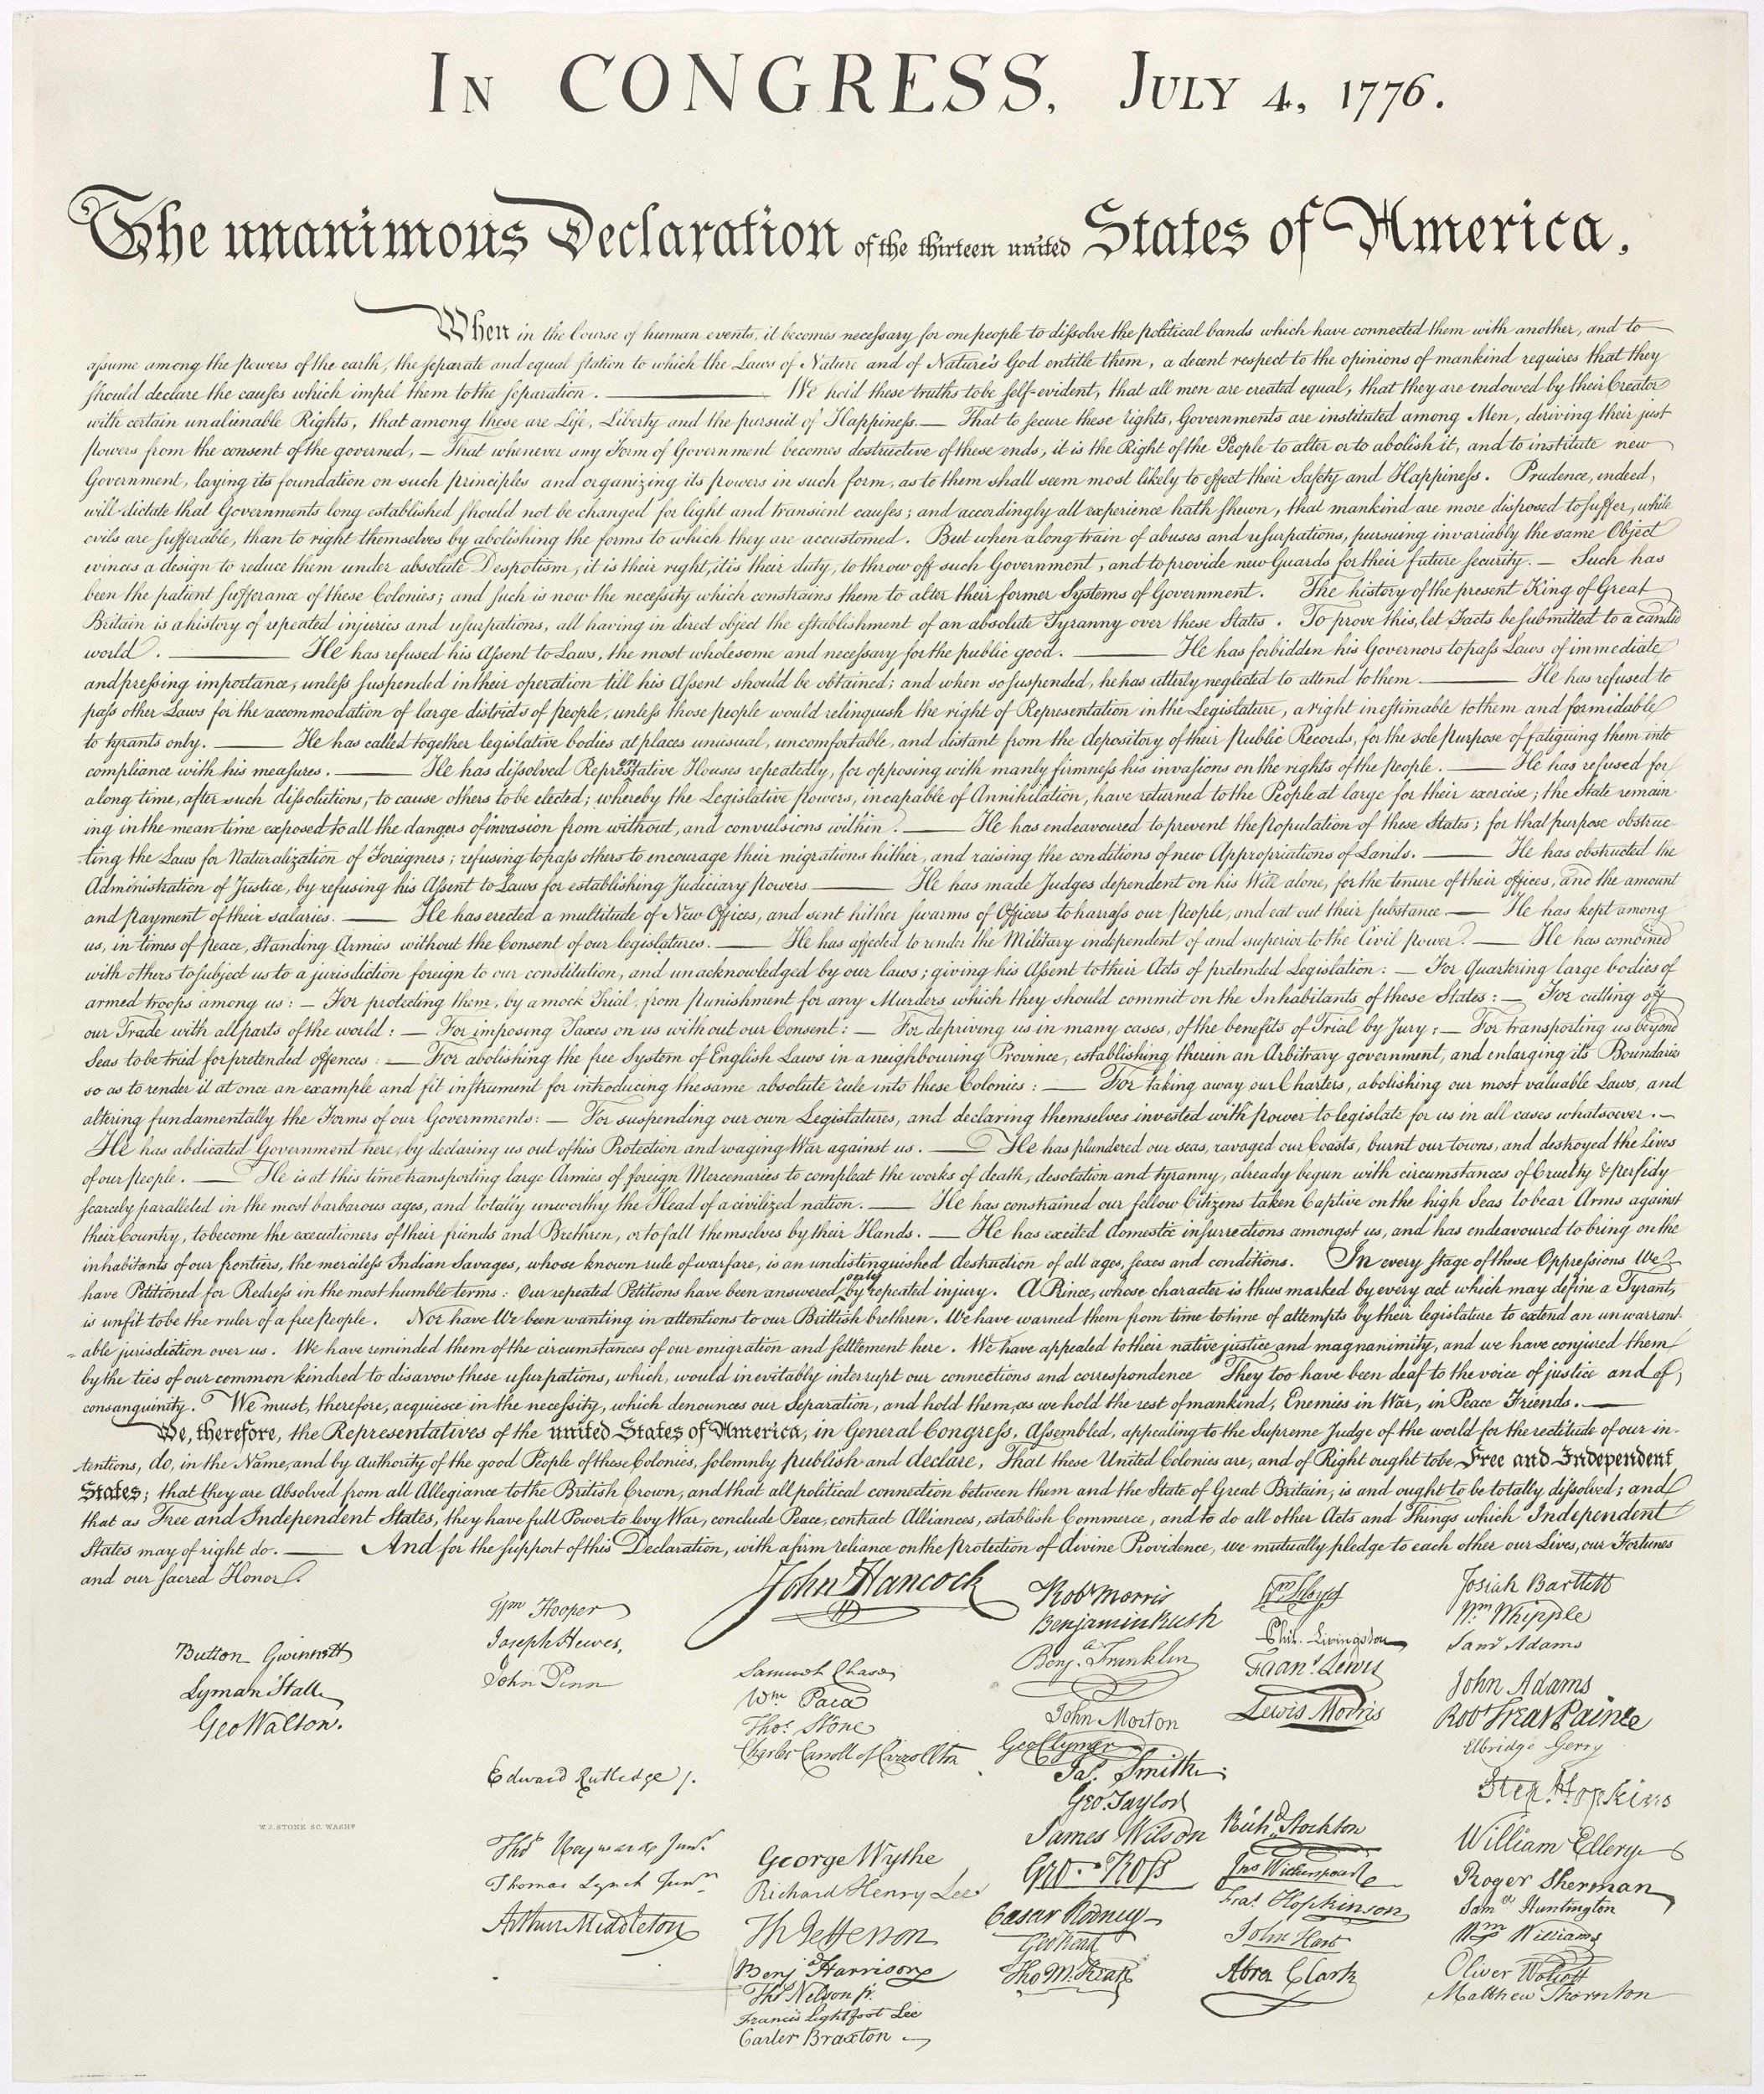 IN CONGRESS, JULY 4, 1776.
The unanimous Declaration of the thirteen united States of America,
When in the Course of human events, it becomes necessary for one people to dissolve the political bands which have connected them with another, and to
assume among the powers of the earth, the separate and equal station to which the Laws of Nature and of Nature's God entitle them, a decent respect to the opinions of mankind requires that they
should declare the causes which impel them to the separation. ——— We hold these truths to be self-evident, that all men are created equal, that they are endowed by their Creator
with certain unalienable Rights, that among these are Life, Liberty and the pursuit of Happiness.— That to secure these rights, Governments are instituted among Men, deriving their just
powers from the consent of the governed, — That whenever any Form of Government becomes destructive of these ends, it is the Right of the People to alter or to abolish it, and to institute new
Government, laying its foundation on such principles and organizing its powers in such form, as to them shall seem most likely to effect their Safety and Happiness. Prudence, indeed,
will dictate that Governments long established should not be changed for light and transient causes; and accordingly all experience hath shewn, that mankind are more disposed to suffer, while
evils are sufferable, than to right themselves by abolishing the forms to which they are accustomed. But when a long train of abuses and usurpations, pursuing invariably the same Object
evinces a design to reduce them under absolute Despotism, it is their right, it is their duty, to throw off such Government, and to provide new Guards for their future security. — Such has
been the patient sufferance of these Colonies; and such is now the necessity which constrains them to alter their former Systems of Government. The history of the present King of Great
Britain is a history of repeated injuries and usurpations, all having in direct object the establishment of an absolute Tyranny over these States. To prove this, let Facts be submitted to a candid
world. ——— He has refused his Assent to Laws, the most wholesome and necessary for the public good. ——— He has forbidden his Governors to pass Laws of immediate
and pressing importance, unless suspended in their operation till his Assent should be obtained; and when so suspended, he has utterly neglected to attend to them. ——— He has refused to
pass other Laws for the accommodation of large districts of people, unless those people would relinquish the right of Representation in the Legislature, a right inestimable to them and formidable
to tyrants only. ——— He has called together legislative bodies at places unusual, uncomfortable, and distant from the depository of their public Records, for the sole purpose of fatiguing them into
compliance with his measures. ——— He has dissolved Representative Houses repeatedly, for opposing with manly firmness his invasions on the rights of the people. ——— He has refused for
a long time, after such dissolutions, to cause others to be elected; whereby the Legislative powers, incapable of Annihilation, have returned to the People at large for their exercise; the State remain
ing in the mean time exposed to all the dangers of invasion from without, and convulsions within. ——— He has endeavoured to prevent the population of these States; for that purpose obstruc-
ting the Laws for Naturalization of Foreigners; refusing to pass others to encourage their migrations hither, and raising the conditions of new Appropriations of Lands. ——— He has obstructed the
Administration of Justice, by refusing his Assent to Laws for establishing Judiciary powers. ——— He has made Judges dependent on his Will alone, for the tenure of their offices, and the amount
and payment of their salaries. ——— He has erected a multitude of New Offices, and sent hither swarms of Officers to harrass our people, and eat out their substance. — He has kept among
us, in times of peace, Standing Armies without the Consent of our legislatures. ——— He has affected to render the Military independent of and superior to the Civil power. — He has combined
with others to subject us to a jurisdiction foreign to our constitution, and unacknowledged by our laws; giving his Assent to their Acts of pretended Legislation: — For Quartering large bodies of
armed troops among us: — For protecting them, by a mock Trial, from punishment for any Murders which they should commit on the Inhabitants of these States: — For cutting off
our Trade with all parts of the world: — For imposing Taxes on us without our Consent: — For depriving us in many cases, of the benefits of Trial by Jury: — For transporting us beyond
Seas to be tried for pretended offences: — For abolishing the free System of English Laws in a neighbouring Province, establishing therein an Arbitrary government, and enlarging its Boundaries
so as to render it at once an example and fit instrument for introducing the same absolute rule into these Colonies: — For taking away our Charters, abolishing our most valuable Laws, and
altering fundamentally the Forms of our Governments: — For suspending our own Legislatures, and declaring themselves invested with power to legislate for us in all cases whatsoever. —
He has abdicated Government here, by declaring us out of his Protection and waging War against us. ——— He has plundered our seas, ravaged our Coasts, burnt our towns, and destroyed the lives
of our people. ——— He is at this time transporting large Armies of foreign Mercenaries to compleat the works of death, desolation and tyranny, already begun with circumstances of Cruelty & perfidy
scarcely paralleled in the most barbarous ages, and totally unworthy the Head of a civilized nation. ——— He has constrained our fellow Citizens taken Captive on the high Seas to bear Arms against
their Country, to become the executioners of their friends and Brethren, or to fall themselves by their Hands. — He has excited domestic insurrections amongst us, and has endeavoured to bring on the
inhabitants of our frontiers, the merciless Indian Savages, whose known rule of warfare, is an undistinguished destruction of all ages, sexes and conditions. In every stage of these Oppressions We
have Petitioned for Redress in the most humble terms: Our repeated Petitions have been answered only by repeated injury. A Prince, whose character is thus marked by every act which may define a Tyrant,
is unfit to be the ruler of a free people. Nor have We been wanting in attentions to our Brittish brethren. We have warned them from time to time of attempts by their legislature to extend an unwarrant-
able jurisdiction over us. We have reminded them of the circumstances of our emigration and settlement here. We have appealed to their native justice and magnanimity, and we have conjured them
by the ties of our common kindred to disavow these usurpations, which, would inevitably interrupt our connections and correspondence They too have been deaf to the voice of justice and of
consanguinity. We must, therefore, acquiesce in the necessity, which denounces our Separation, and hold them, as we hold the rest of mankind, Enemies in War, in Peace Friends. ———
We, therefore, the Representatives of the united States of America, in General Congress, Assembled, appealing to the Supreme Judge of the world for the rectitude of our in-
tentions, do, in the Name, and by authority of the good People of these Colonies, solemnly publish and declare, That these United Colonies are, and of Right ought to be Free and Independent
States; that they are Absolved from all Allegiance to the British Crown, and that all political connection between them and the State of Great Britain, is and ought to be totally dissolved; and
that as Free and Independent States, they have full Power to levy War, conclude Peace, contract Alliances, establish Commerce, and to do all other Acts and Things which Independent
States may of right do. ——— And for the support of this Declaration, with a firm reliance on the protection of divine Providence, we mutually pledge to each other our Lives, our Fortunes
and our sacred Honor.
Button Gwinnett
Lyman Hall
Geo Walton.
Wm Hooper
Joseph Hewes,
John Penn
Edward Rutledge /.
Thos Heyward Junr.
Thomas Lynch Junr.
Arthur Middleton
John Hancock
Samuel Chase
Wm Paca
Thos Stone
Charles Carroll of Carrollton
George Wythe
Richard Henry Lee
Th Jefferson
Benj Harrison
Thos Nelson jr.
Francis Lightfoot Lee
Carter Braxton
Robt Morris
Benjamin Rush
Benja. Franklin
John Morton
Geo Clymer
Jas. Smith
Geo. Taylor
James Wilson
Geo. Ross
Caesar Rodney
Geo Read
Tho M:Kean
Wm Floyd
Phil. Livingston
Frans. Lewis
Lewis Morris
Richd. Stockton
Jno Witherspoon
Fras. Hopkinson
John Hart
Abra Clark
Josiah Bartlett
Wm Whipple
Saml Adams
John Adams
Robt Treat Paine
Elbridge Gerry
Step. Hopkins
William Ellery
Roger Sherman
Samel Huntington
Wm Williams
Oliver Wolcott
Matthew Thornton
W. J. STONE SC. WASHN